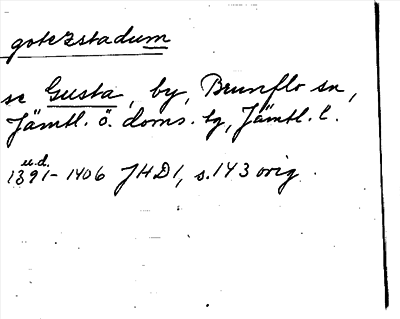 gotezstadum
se Gusta, by, Brunflo sn,
Jämtl. ö. doms. hg, Jämtl. l.
u.d.
1391-1406 JHD1, s. 143 orig.